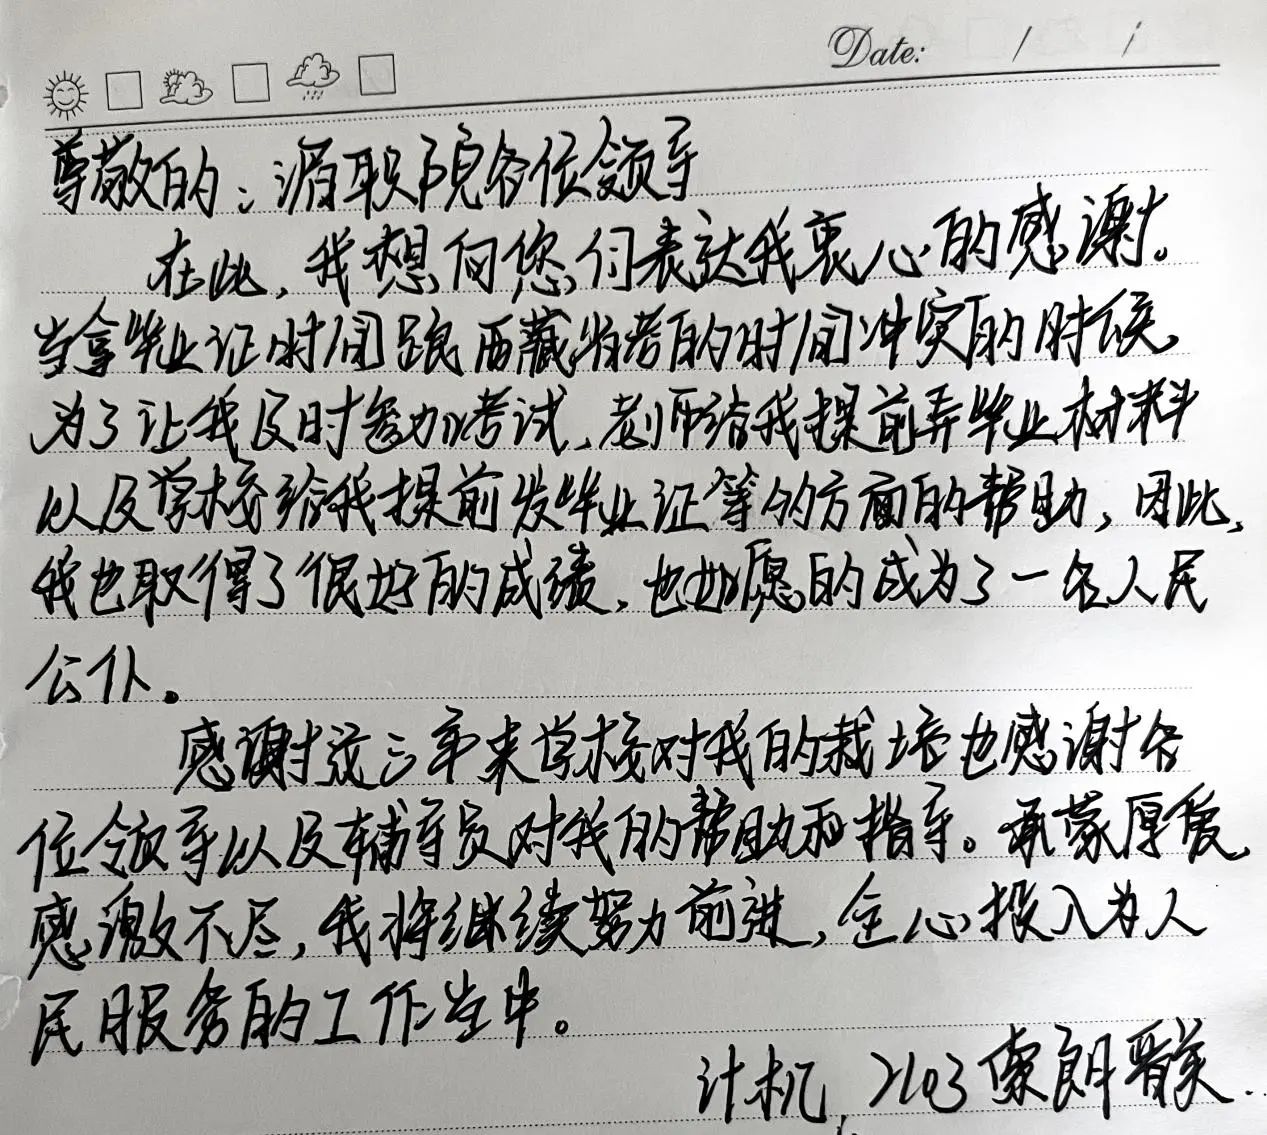 Date: / /
尊敬的：渭职院各位领导
在此，我想向您们表达我衷心的感谢。
当拿毕业证时间跟西藏省考的时间冲突的时候，
为了让我及时参加考试，老师给我提前弄毕业材料
以及学校给我提前发毕业证等的方面的帮助，因此，
我也取得了很好的成绩，也如愿的成为了一名人民
公仆。
感谢这三年来学校对我的栽培也感谢各
位领导以及辅导员对我的帮助和指导。承蒙厚爱，
感激不尽，我将继续努力前进，全心投入为人
民服务的工作当中。
计机，2103 索朗晋美